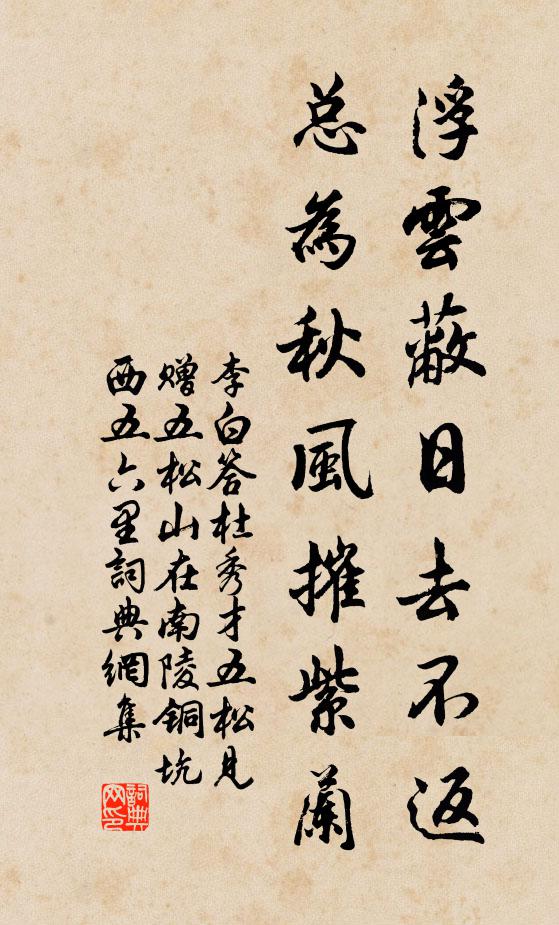 浮雲蔽日去不返
总為秋風摧紫蘭
李白答杜秀才五松見
赠五松山在南陵銅坑
西五六里詞典網集
詞典
网印